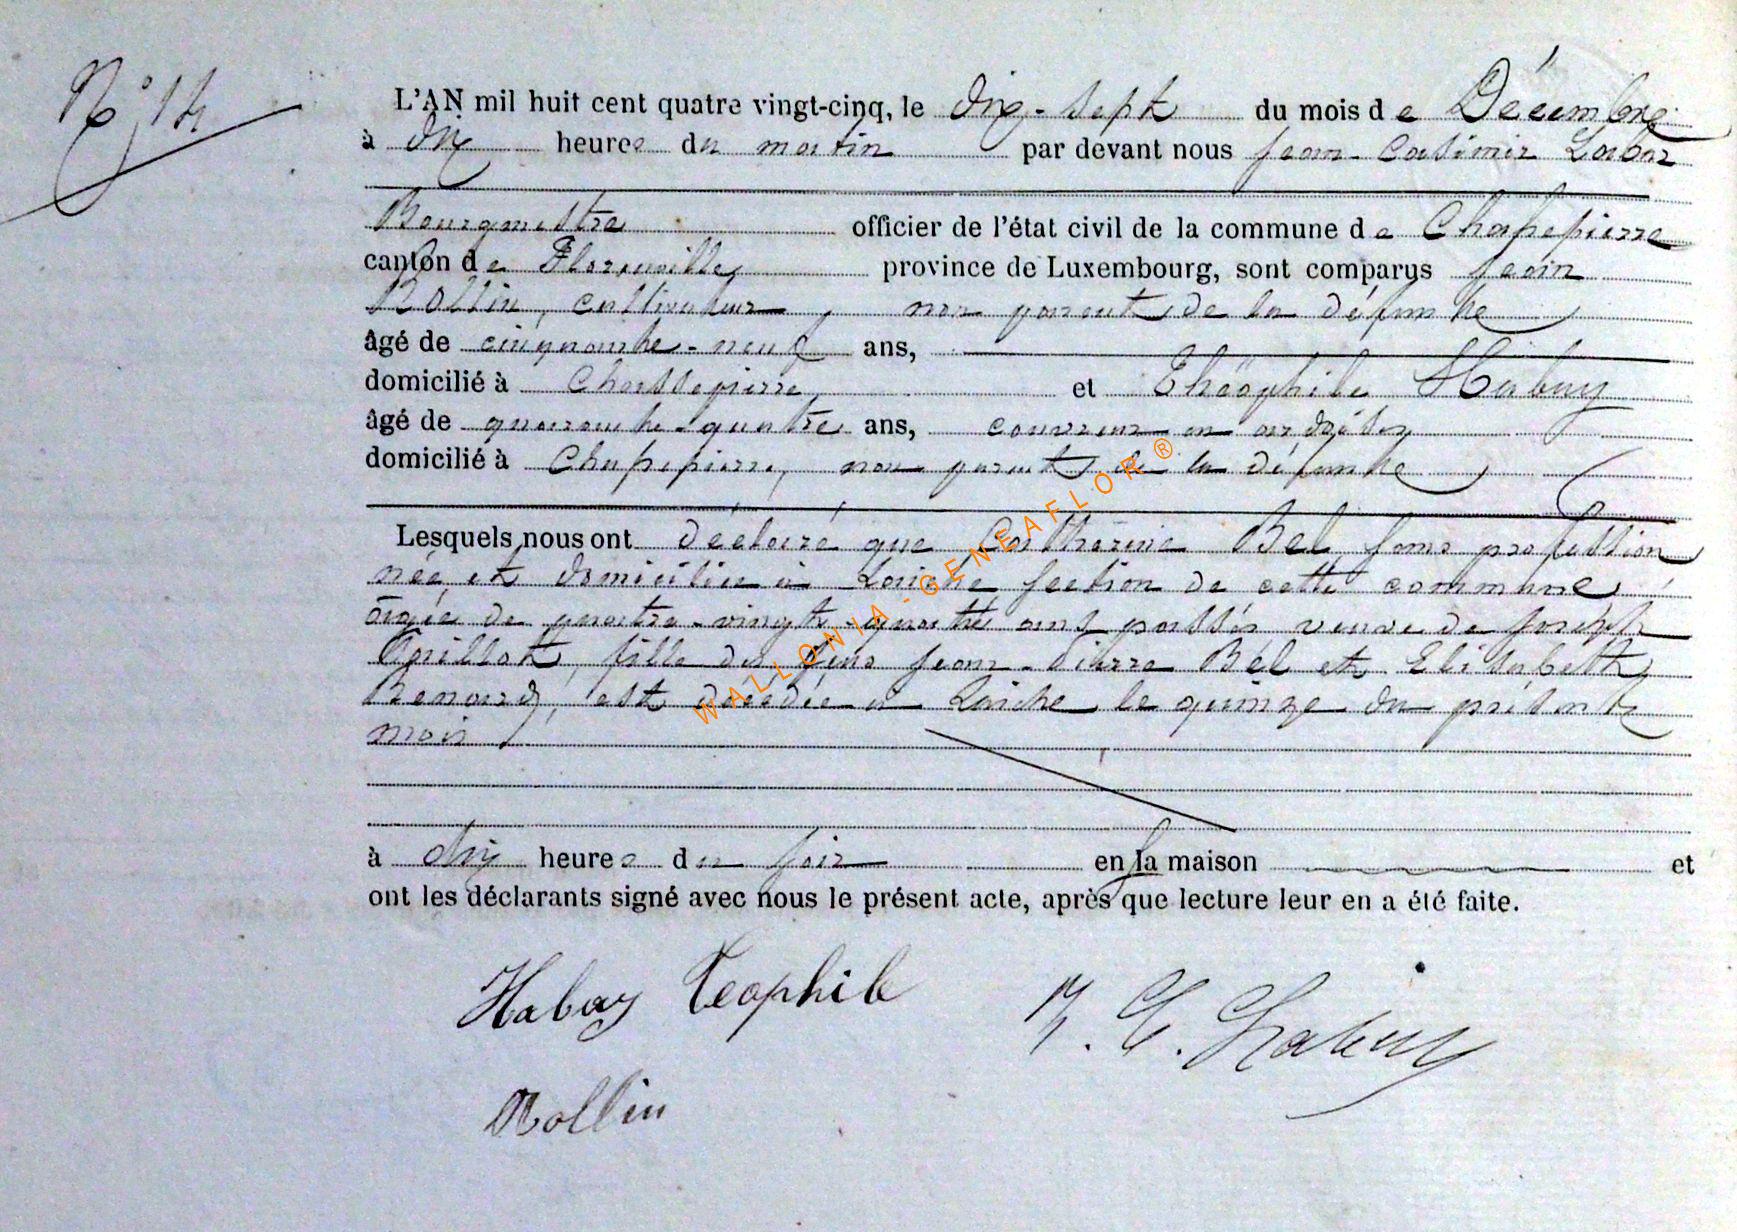 N° 14
L'AN mil huit cent quatre vingt-cinq, le dix-sept du mois de Décembre
à dix heures du matin par devant nous Jean-Casimir
Bourgmestre officier de l'état civil de la commune de Chassepierre
canton de Florenville province de Luxembourg, sont comparus Jean
Rollin, cultivateur, non parent de la défunte
âgé de cinquante-neuf ans,
domicilié à Chassepierre, et Théophile Habay
âgé de quarante-quatre ans, couvreur en ardoises
domicilié à Chassepierre, non parent de la défunte
Lesquels nous ont déclaré que Catherine Bel sans profession
née et domiciliée à Laiche section de cette commune
âgée de quatre-vingt-quatre ans passés veuve de Joseph
fille des feus Jean-Pierre Bel et Elisabeth
Renard, est décédée à Laiche le quinze du présent
mois
à dix heures du soir en sa maison et
ont les déclarants signé avec nous le présent acte, après que lecture leur en a été faite.
Habay Teophile
Rollin
WALLONIA-GENEAFLOR®